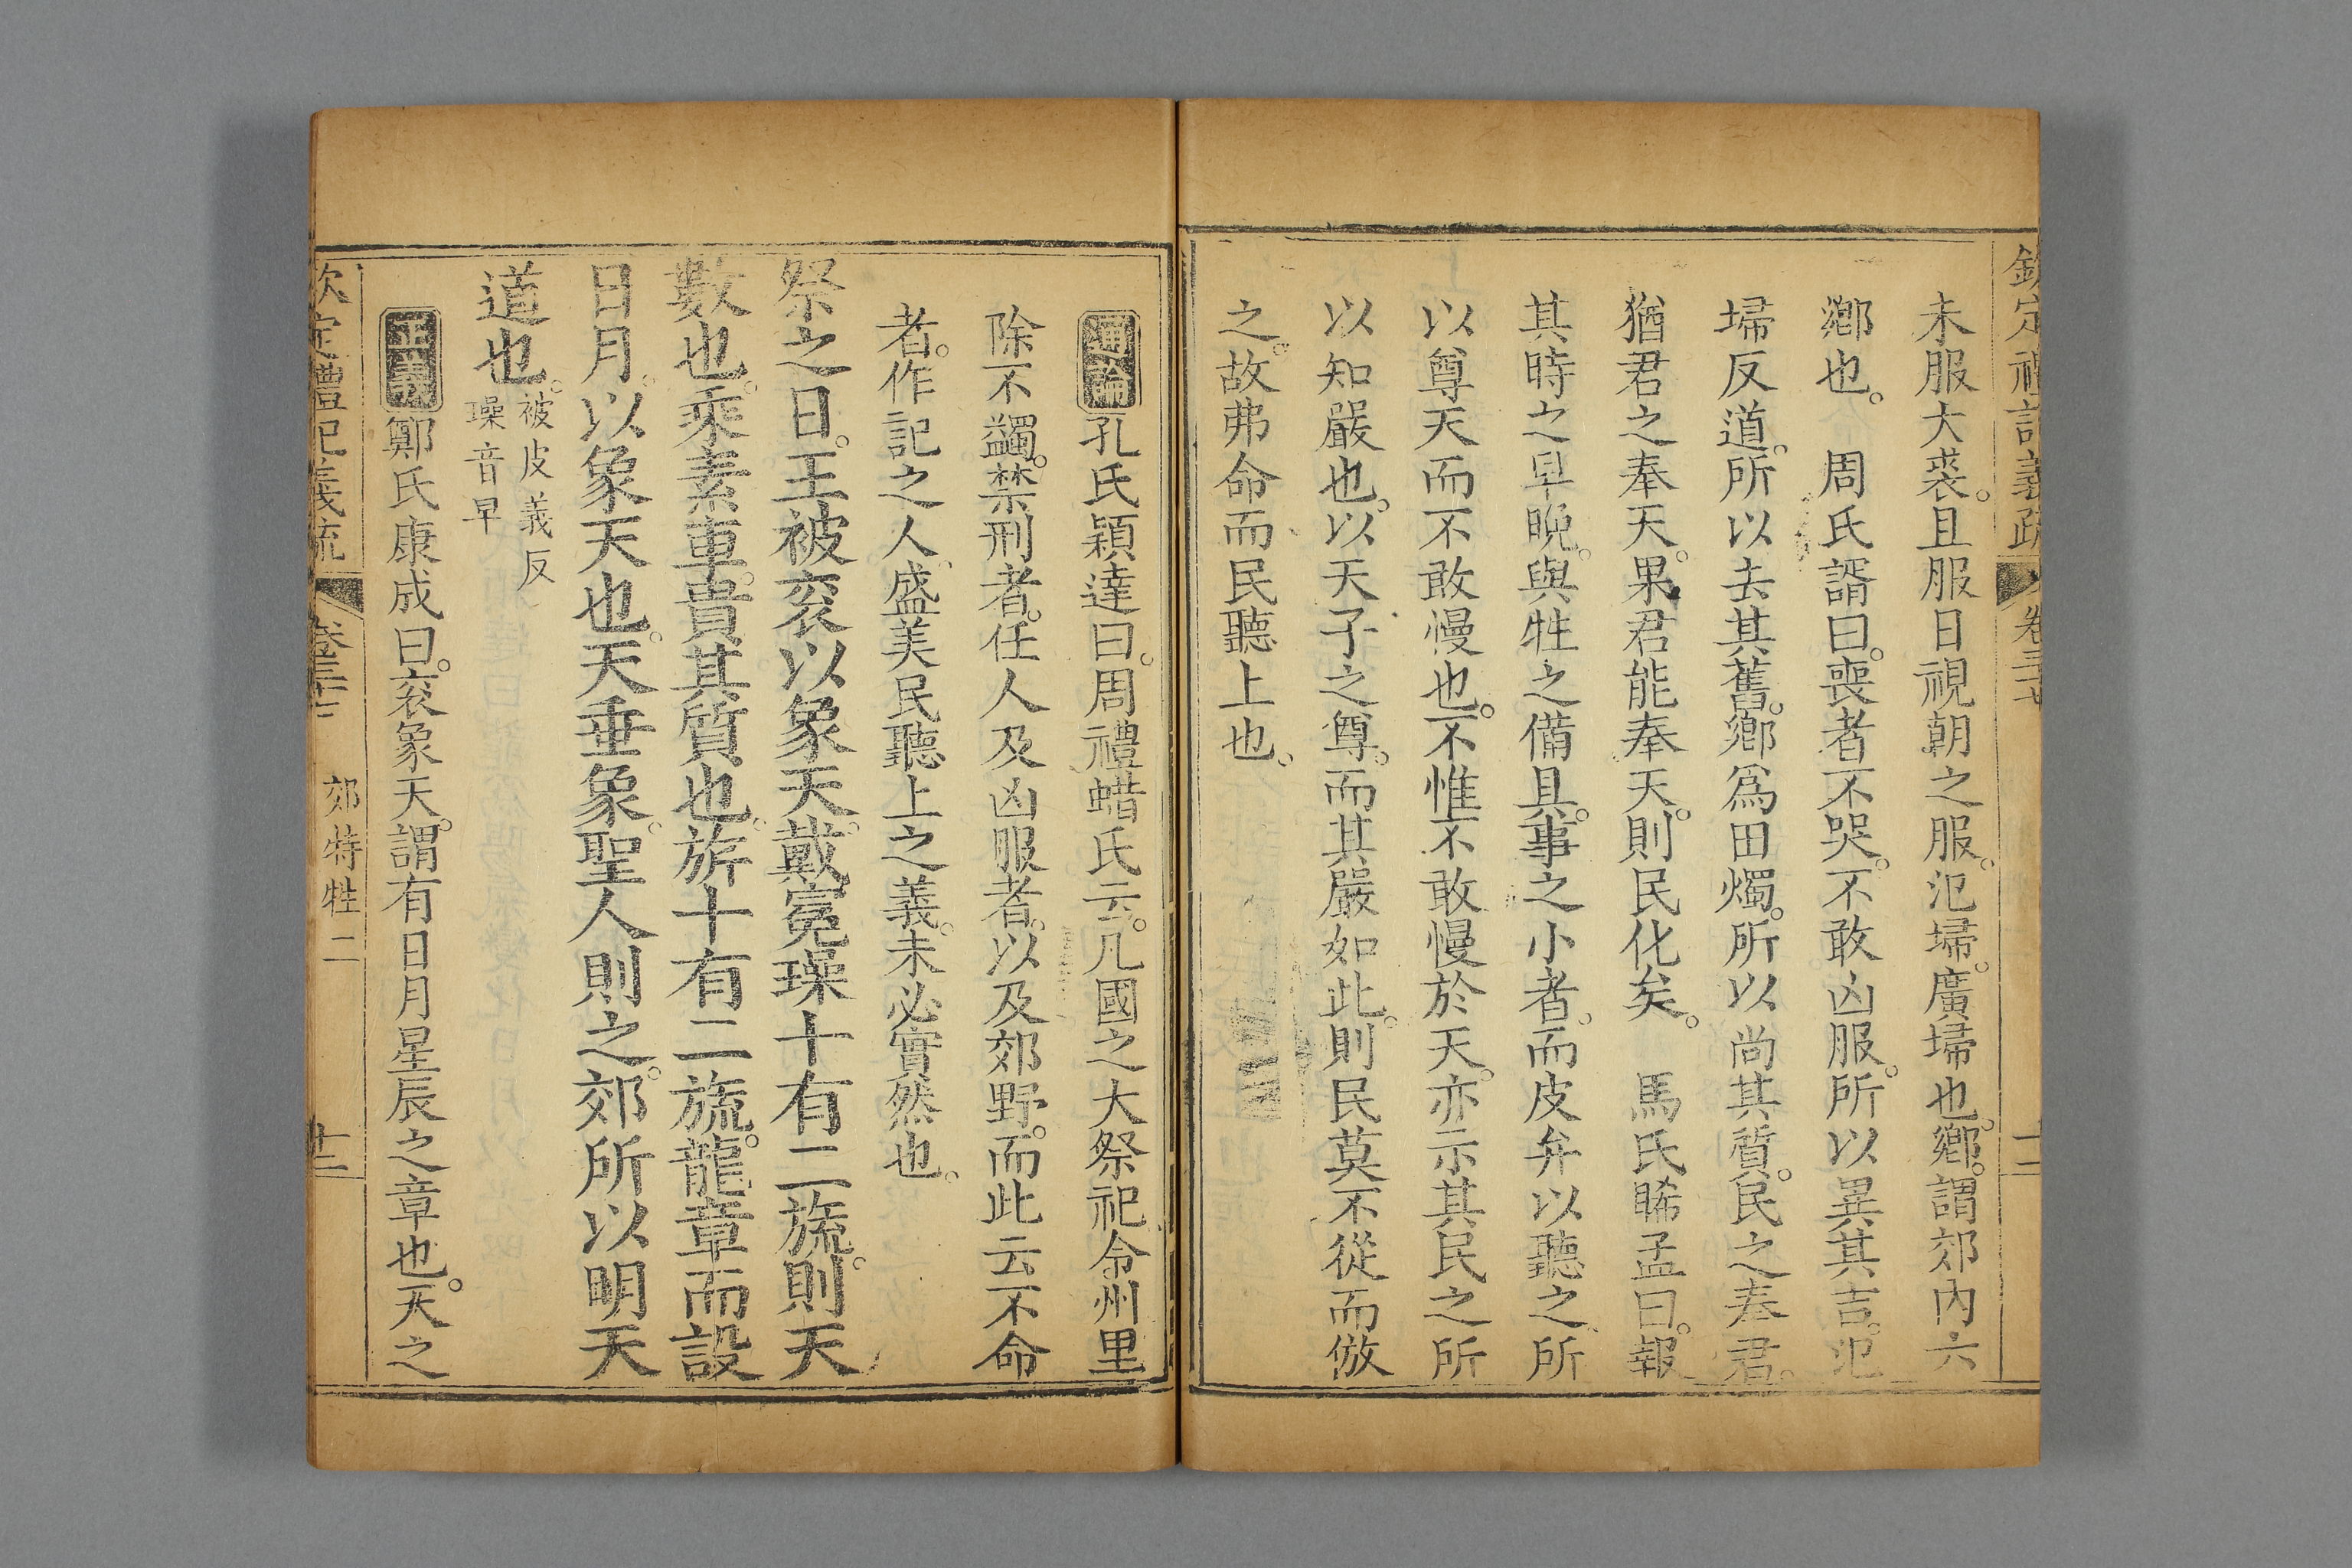 欽定禮記義疏 卷三十七 十二
未服大裘。且服日視朝之服。氾埽。廣埽也。鄉。謂郊內六
鄉也。 周氏諝曰。喪者不哭。不敢凶服。所以異其吉。氾
埽反道。所以去其舊。鄉為田燭。所以尚其質。民之奉君。
猶君之奉天。果君能奉天。則民化矣。 馬氏睎孟曰。報
其時之早晚。與牲之備具。事之小者。而皮弁以聽之。所
以尊天而不敢慢也。不惟不敢慢於天。亦示其民之所
以知嚴也。以天子之尊。而其嚴如此。則民莫不從而倣
之。故弗命而民聽上也。
通論孔氏穎達曰。周禮蜡氏云。凡國之大祭祀令州里
除不蠲。禁刑者。任人及凶服者。以及郊野。而此云不命
者。作記之人。盛美民聽上之義。未必實然也。
祭之日。王被袞以象天。戴冕璪十有二旒。則天
數也。乘素車。貴其質也。旂十有二旒。龍章而設
日月。以象天也。天垂象。聖人則之。郊所以明天
道也。被皮義反
璪音早
正義鄭氏康成曰。袞象天。謂有日月星辰之章也。天之
欽定禮記義疏 卷三十七 郊特牲二 十三